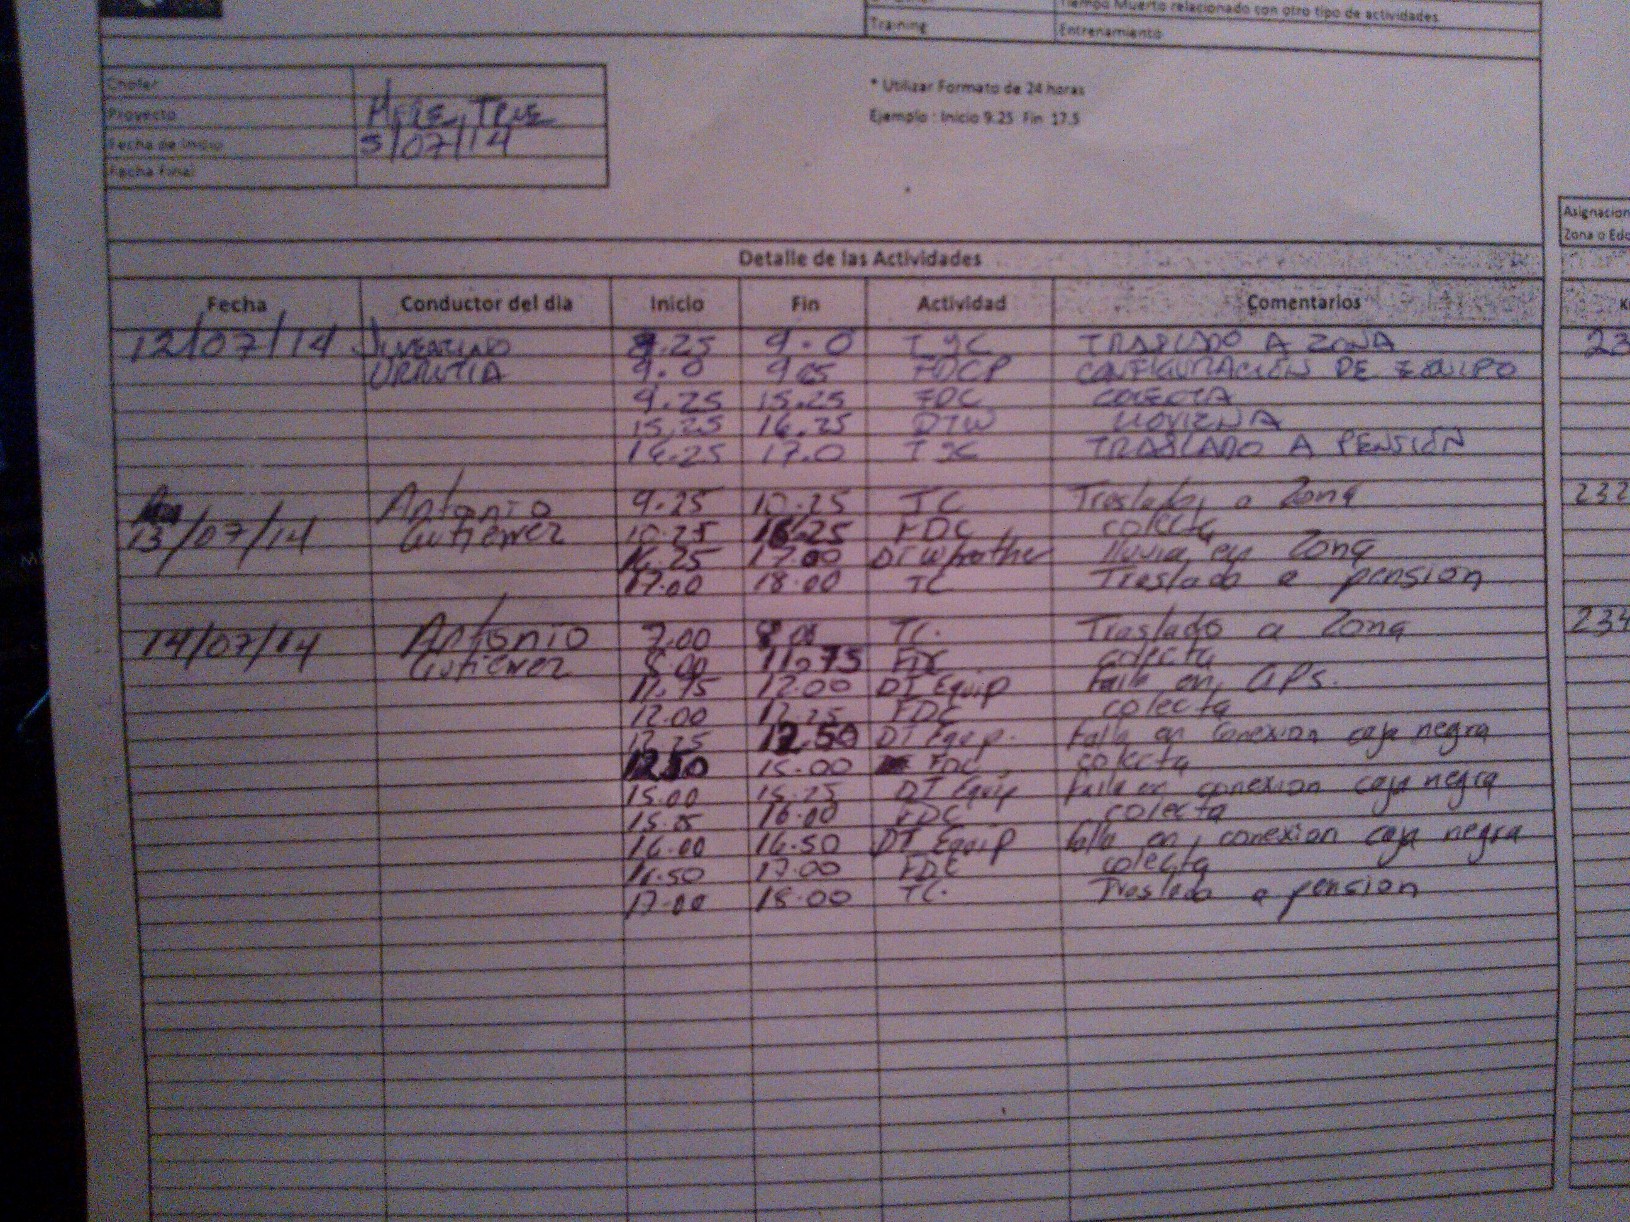 Tiempo Muerto relacionado con otro tipo de actividades
Training Entrenamiento
Chofer
Proyecto
Fecha de Inicio 5/07/14
Fecha Final
* Utilizar Formato de 24 horas
Ejemplo : Inicio 9.25 Fin 17.5
Asignacion
Zona o Edo
Detalle de las Actividades
Fecha Conductor del dia Inicio Fin Actividad Comentarios
12/07/14 JUVENTINO 8.25 9.0 TSC TRASLADO A ZONA 23
URRUTIA 9.0 9.25 FDCP CONFIGURACIÓN DE EQUIPO
9.25 15.25 FDC COLECTA
15.25 16.25 DTW LLOVIZNA
16.25 17.0 TSC TRASLADO A PENSIÓN
Antonio 9.25 10.25 TC Traslado a Zona 232
13/07/14 Gutierrez 10.25 16.25 FDC colecta
16.25 17.00 DT Weather lluvia en Zona
17.00 18.00 TC Traslado a pension
14/07/14 Antonio 7.00 8.00 TC. Traslado a Zona 234
Gutierrez 8.00 11.75 FDC colecta
11.75 12.00 DT Equip falla en GPS.
12.00 12.25 FDC colecta
12.25 12.50 DT Eqep. falla en conexion caja negra
12.50 15.00 FDC colecta
15.00 15.25 DT Equip falla en conexion caja negra
15.25 16.00 FDC colecta
16.00 16.50 DT Equip falla en conexion caja negra
16.50 17.00 FDC colecta
17.00 18.00 TC. Traslado a pension